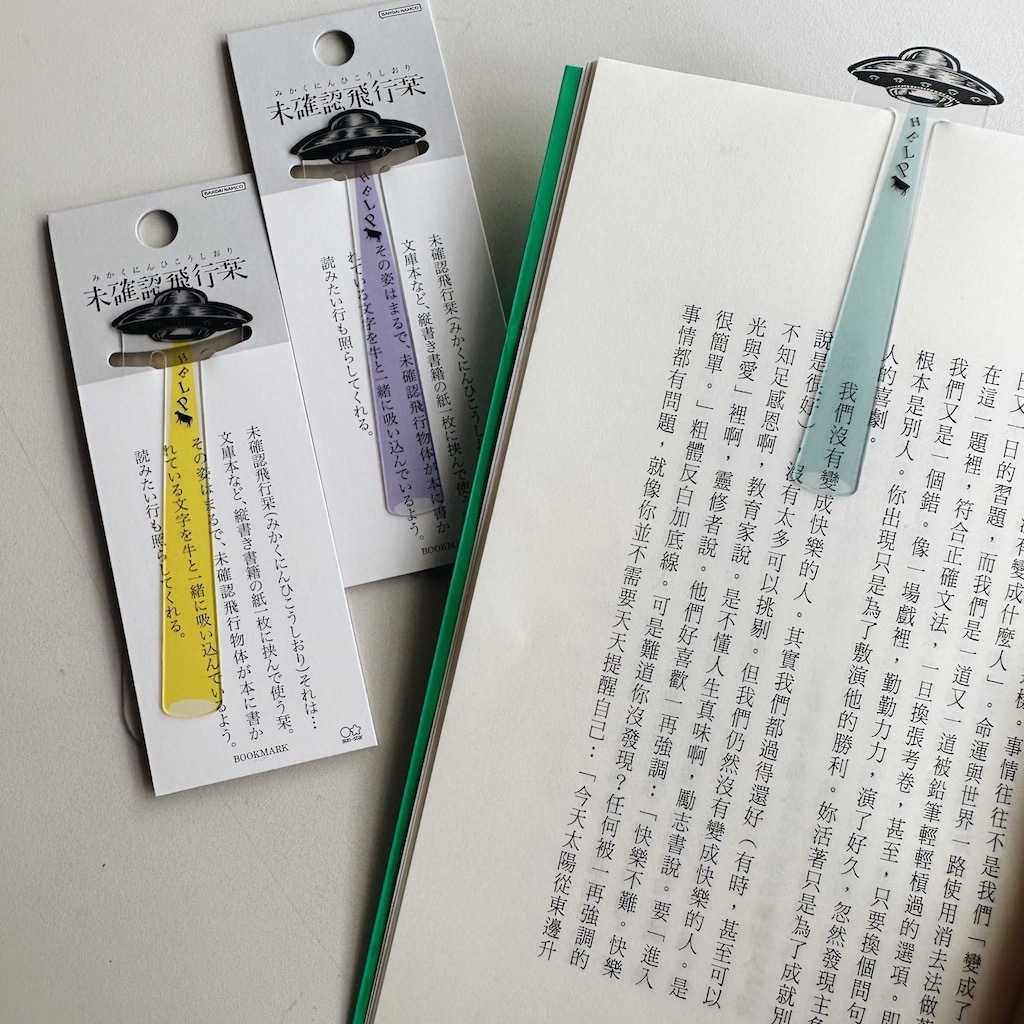 BANDAI NAMCO
みかくにんひこうしおり
未確認飛行栞
HELP
未確認飛行栞(みかくにんひこうしおり)それは…
文庫本など、縦書き書籍の紙一枚に挟んで使う栞。
その姿はまるで、未確認飛行物体が本に書か
れている文字を牛と一緒に吸い込んでいるよう。
読みたい行も照らしてくれる。
BOOKMARK
SUN-STAR
BANDAI NAMCO
みかくにんひこうしおり
未確認飛行栞
HELP
未確認飛行栞(みかくにんひこうし
文庫本など、縦書き書籍の紙一枚に挟んで使
その姿はまるで、未確認飛行物体が本に書か
れている文字を牛と一緒に吸い込んでいるよう。
読みたい行も照らしてくれる。
BOOKMARK
HELP
樣。事情往往不是我們「變成了
有變成什麼人」。命運與世界一路使用消去法做
日又一日的習題，而我們是一道又一道被鉛筆輕輕槓過的選項。即
在這一題裡，符合正確文法，一日換張考卷，甚至，只要換個問句
我們又是一個錯。像一場戲裡，勤勤力力，演了好久，忽然發現主角
根本是別人。你出現只是為了敷演他的勝利。妳活著只是為了成就別
人的喜劇。
我們沒有變成快樂的人。其實我們都過得還好（有時，甚至可以
說是很好），沒有太多可以挑剔。但我們仍然沒有變成快樂的人。是
不知足感恩啊，教育家說。是不懂人生真味啊，勵志書說。要「進入
光與愛」裡啊，靈修者說。他們好喜歡一再強調：「快樂不難。快樂
很簡單。」粗體反白加底線。可是難道你沒發現？任何被一再強調的
事情都有問題，就像你並不需要天天提醒自己：「今天太陽從東邊升